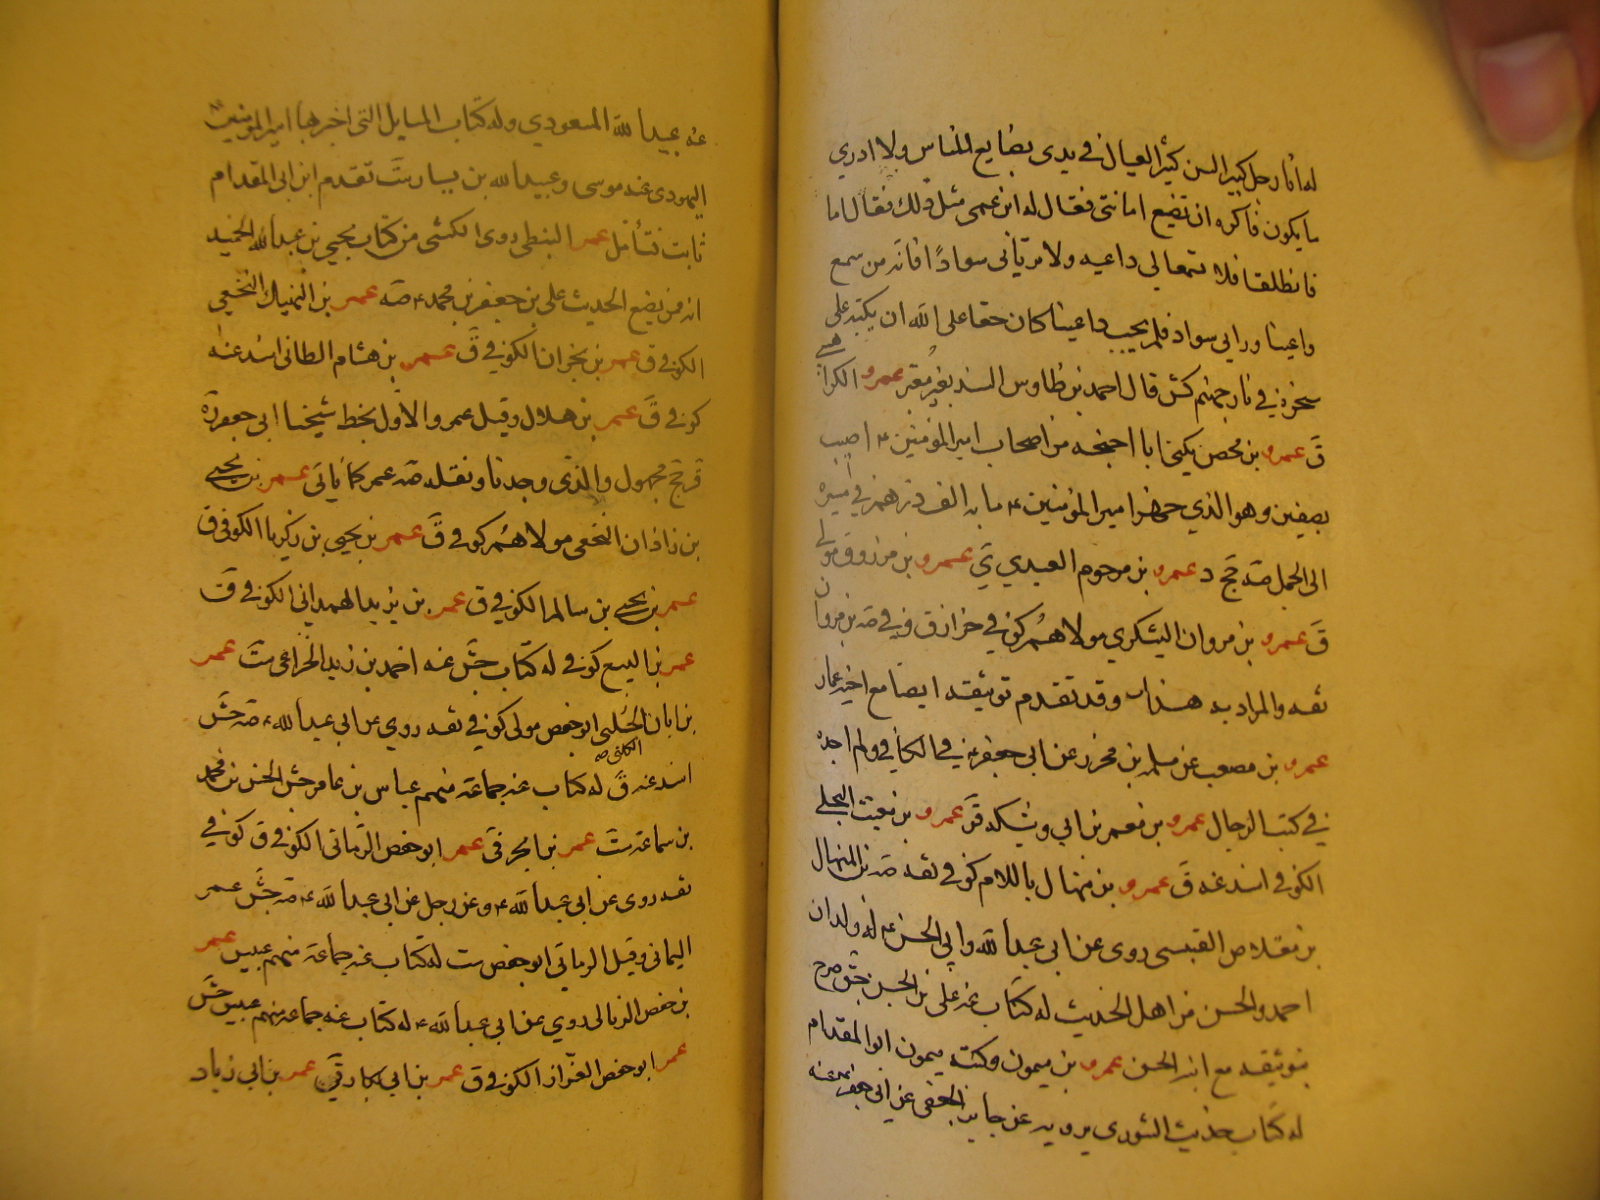 له انا رجل كبير السن كثير العيال في يدى بضايع للناس ولا ادري
ما يكون فاكره ان تضيع امانتى فقال له ابن عمى مثل ذلك فقال اما
فانطلقا فلا تسمعا لى داعيه ولا تريانى سوادًا فانه من سمع
واعيتنا وراى سوادنا فلم يجب داعينا كان حقا على الله ان يكبه على
منخره في نار جهنم كش قال احمد بن طاوس السند بغير معتبر عمرو الكرا
ق عمرو بن محصن يكنى ابا احيحه من اصحاب امير المؤمنين ع اصيب
بصفين وهو الذي جهز امير المؤمنين ع مائه الف درهم في مسيره
الى الجمل صه جخ د عمرو بن مرحوم العبدي ى عمرو بن مرزوق مولى
ق عمرو بن مروان اليشكري مولاهم كوفي خزاز ق وفي صه بن مروان
ثقه والمراد به هذا وقد تقدم توثيقه ايضا مع اخيه عمار
عمرو بن مصعب عن مسلمه بن محرز عن ابى جعفر ع في الكافي ولم اجده
في كتب الرجال عمرو بن معمر بن ابي وشيكه ق عمرو بن مغيث البجلي
الكوفي اسند عنه ق عمرو بن منهال باللام كوفي ثقه صه بن المنهال
بن مقلاص القيسى روى عن ابى عبد الله وابي الحسن ع له ولدان
احمد والحسن من اهل الحديث له كتاب عنه على بن الحسن جش صرح
بتوثيقه مع ابنه الحسن عمرو بن ميمون وكنيته ميمون ابو المقدام
له كتاب حديث الشورى يرويه عن جابر الجعفى عن ابى جعفر ع عنه
عنه عبيد الله المسعودي وله كتاب المسايل التى اخبر بها امير المؤمنين ع
اليهودى عنه موسى وعبيد الله بن يسار ست تقدم ابن ابى المقدام
ثابت فتأمل عمر النبطى روى الكشى من كتاب يحيى بن عبد الحميد
انه ممن يضع الحديث على بن جعفر بن محمد ع صه عمر بن النهيك النخعي
الكوفي ق عمر بن نجران الكوفي ق عمر بن هشام الطائى اسند عنه
كوفي ق عمر بن هلال وقيل عمرو الاول بخط شيخنا ابى جعفر ره
ق جخ مجهول والذى وجدناه ونقله صه عمر كما ياتى عمر بن يحيى
بن زاذان النخعى مولاهم كوفي ق عمر بن يحيى بن زكريا الكوفى ق
عمر بن يحيى بن سالم الكوفي ق عمر بن يزيد الهمدانى الكوفي ق
عمر بن اليسع كوفي له كتاب جش عنه احمد بن زيد الخزاعى ست عمر
بن ابان الكلبى ابو حفص مولى كوفي ثقه روي عن ابى عبد الله ع صه جش
الكلبى صه
اسند عنه ق له كتاب عنه جماعة منهم عباس بن عامر جش الحسن بن محمد
بن سماعة ست عمر بن ابجر ق عمر ابو حفص الرمانى الكوفي ق كوفي
ثقه روى عن ابى عبد الله ع وعن رجل عن ابى عبد الله ع صه جش عمر
اليمانى وقيل الرمانى ابو حفص ست له كتاب عنه جماعة منهم عبيس عمر
بن حفص الزبالى روي عن ابى عبد الله ع له كتاب عنه جماعه منهم عبيس جش
عمر ابو حفص القزاز الكوفي ق عمر بن ابى بكار ق عمر بن ابى زياد